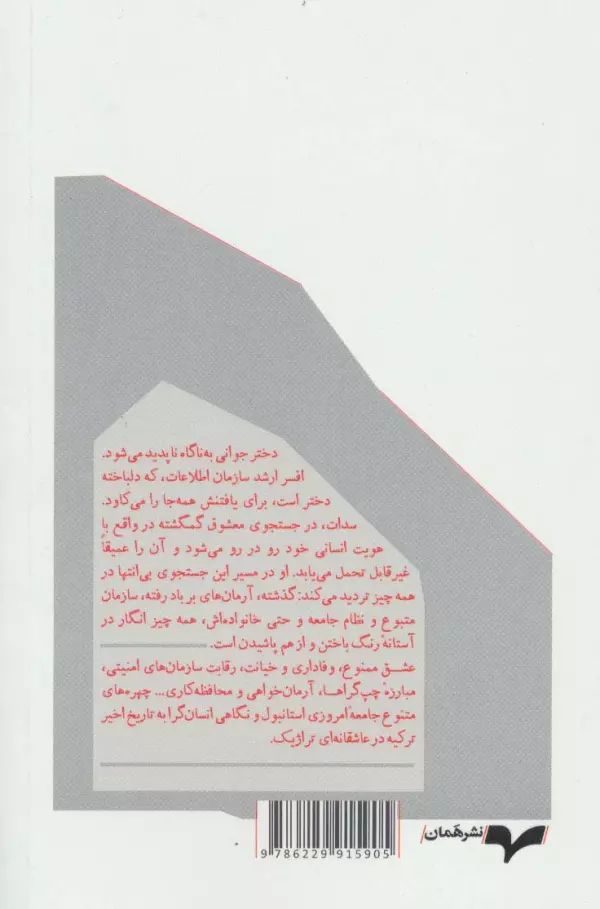 دختر جوانی به‌ناگاه ناپدید می‌شود.
افسر ارشد سازمان اطلاعات، که دلباخته
دختر است، برای یافتنش همه‌جا را می‌کاود.
سدات، در جستجوی معشوق گمگشته در واقع با
هویت انسانی خود رو در رو می‌شود و آن را عمیقاً
غیرقابل تحمل می‌یابد. او در مسیر این جستجوی بی‌انتها در
همه چیز تردید می‌کند: گذشته، آرمان‌های بر باد رفته، سازمان
متبوع و نظام جامعه و حتی خانواده‌اش، همه چیز انگار در
آستانهٔ رنگ باختن و از هم پاشیدن است.
عشق ممنوع، وفاداری و خیانت، رقابت سازمان‌های امنیتی،
مبارزهٔ چپ‌گراها، آرمان‌خواهی و محافظه‌کاری... چهره‌های
متنوع جامعهٔ امروزی استانبول و نگاهی انسان‌گرا به تاریخ اخیر
ترکیه در عاشقانه‌ای تراژیک.
نشر هَمان
9 786229 915905